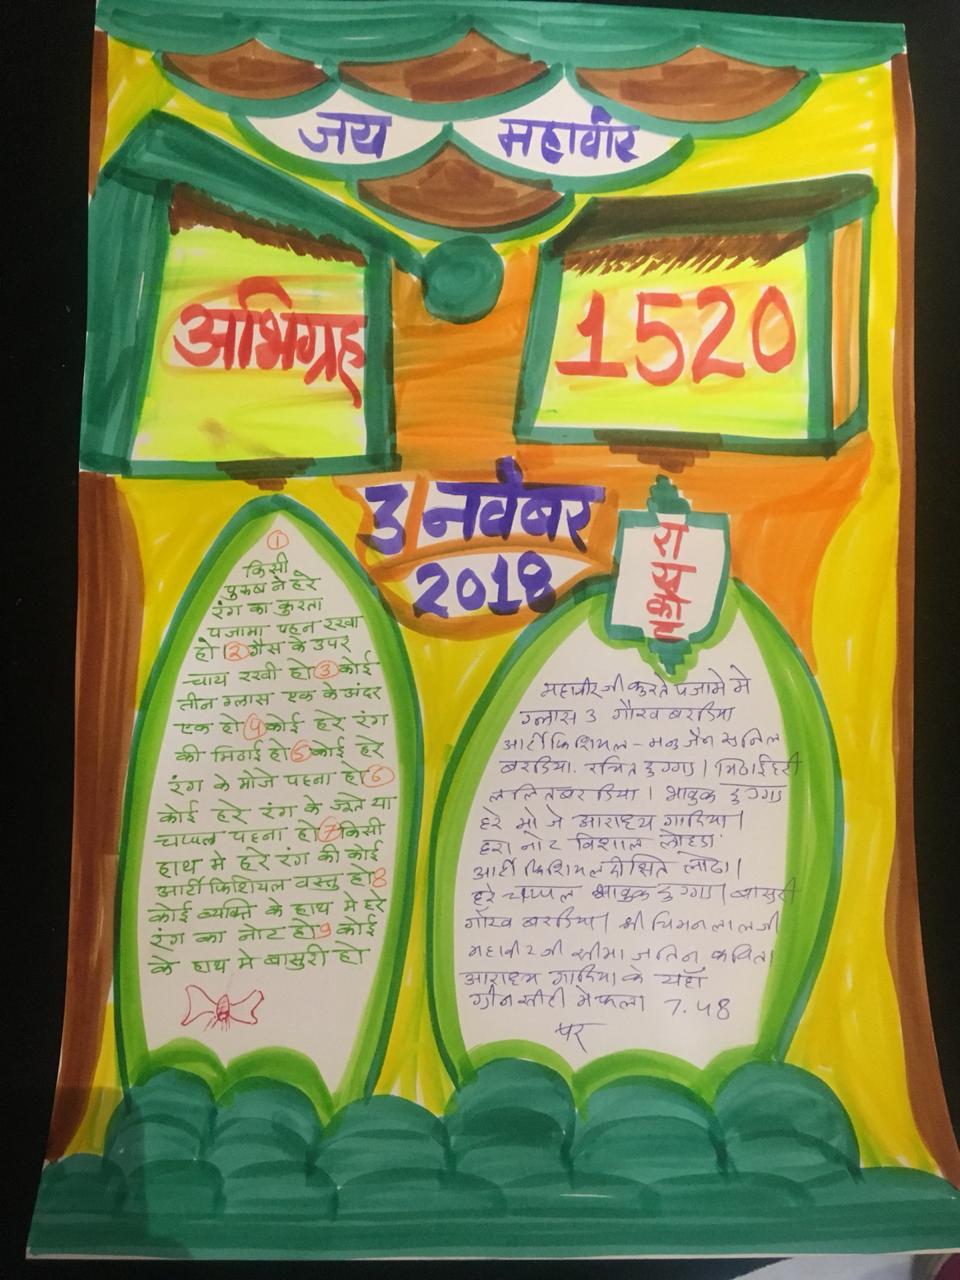 जय महावीर
अभिग्रह
1520
3 नवंबर
2018
①
किसी
पुरुष ने हरे
रंग का कुरता
पजामा पहन रखा
हो ② गैस के उपर
चाय रखी हो ③ कोई
तीन ग्लास एक के अंदर
एक हो ④ कोई हरे रंग
की मिठाई हो ⑤ कोई हरे
रंग के मोजे पहना हो ⑥
कोई हरे रंग के जूते या
चप्पल पहना हो ⑦ किसी
हाथ मे हरे रंग की कोई
आर्टीफिशियल वस्तु हो 8
कोई व्यक्ति के हाथ मे हरे
रंग का नोट हो 9 कोई
के हाथ मे बासुरी हो
महावीर जी कुरते पजामे मे
ग्लास 3 गौरव बरडिया
आर्टीफिशियल - मनु जैन सुनिल
बरडिया. रचित डुग्गड | मिठाई हरी
ललित बरडिया | भावुक डुग्गड
हरे मोजे आराध्य गादिया |
हरा नोट विशाल लोढा
आर्टीफिशियल दीक्षित लोढा |
हरे चप्पल भावुक डुग्गड | बासुरी
गौरव बरडिया | श्री चिमनलालजी
महावीरजी सीमा जतिन कविता
आराध्य गादिया के यहाँ
ग्रीन सीटी मे फला 7.48
पर